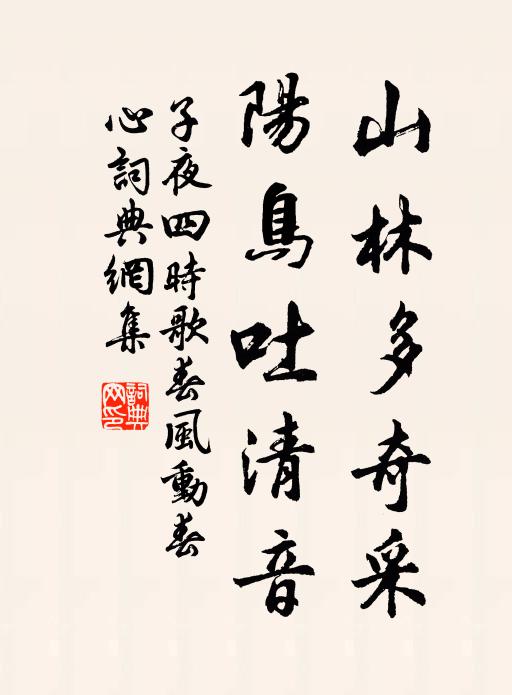 山林多奇采
陽鳥吐清音
子夜四時歌春風動春
心詞典網集
詞典
网印